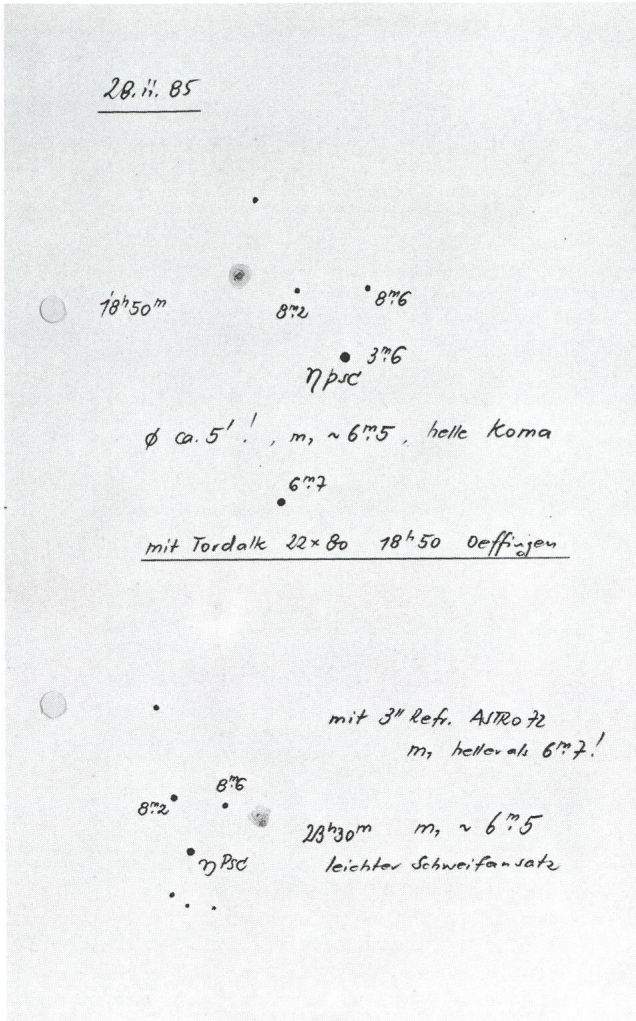 28.11.85
18ʰ50ᵐ
8ᵐ.2
8ᵐ.6
3ᵐ.6
η psc
ø ca. 5' ! , m₁ ~ 6ᵐ.5 , helle Koma
6ᵐ.7
mit Tordalk 22×80 18ʰ50 Oeffingen
mit 3" Refr. ASTRO 72
m₁ heller als 6ᵐ.7!
8ᵐ.6
8ᵐ.2
23ʰ30ᵐ m₁ ~ 6ᵐ.5
η Psc
leichter Schweifansatz